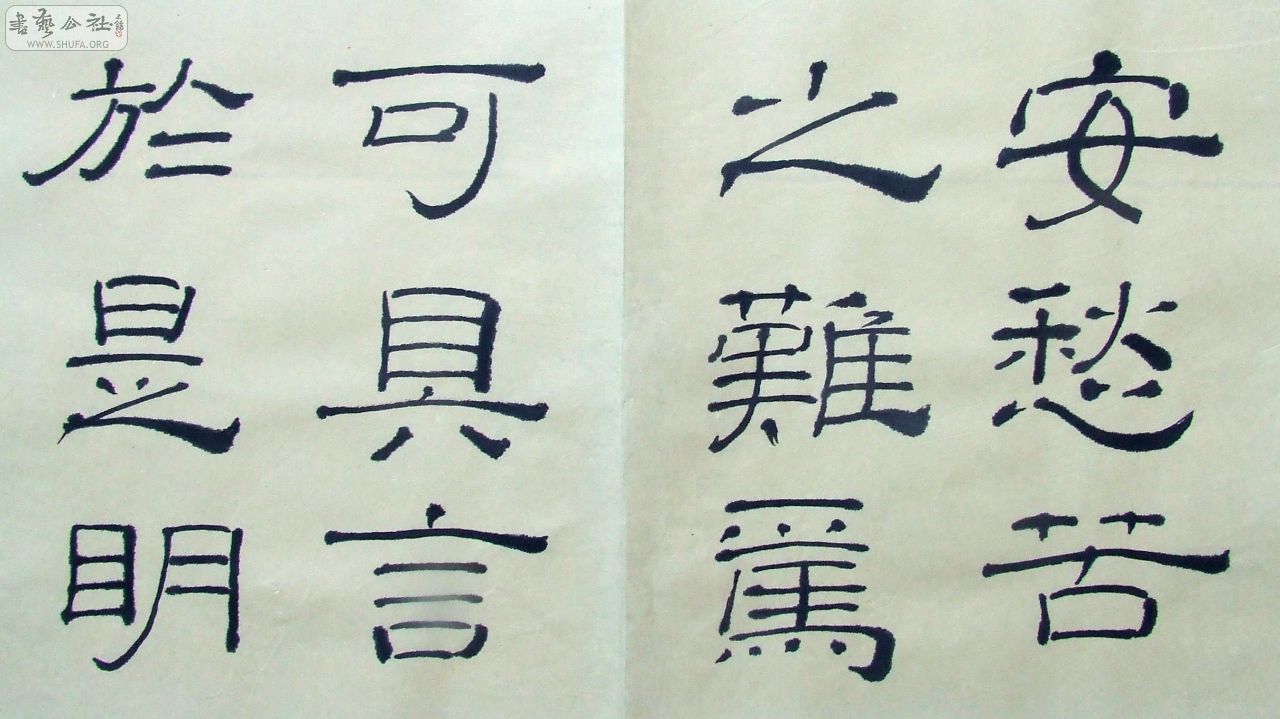 書藝公社
WWW.SHUFA.ORG
安愁苦
之難焉
可具言
於是眀